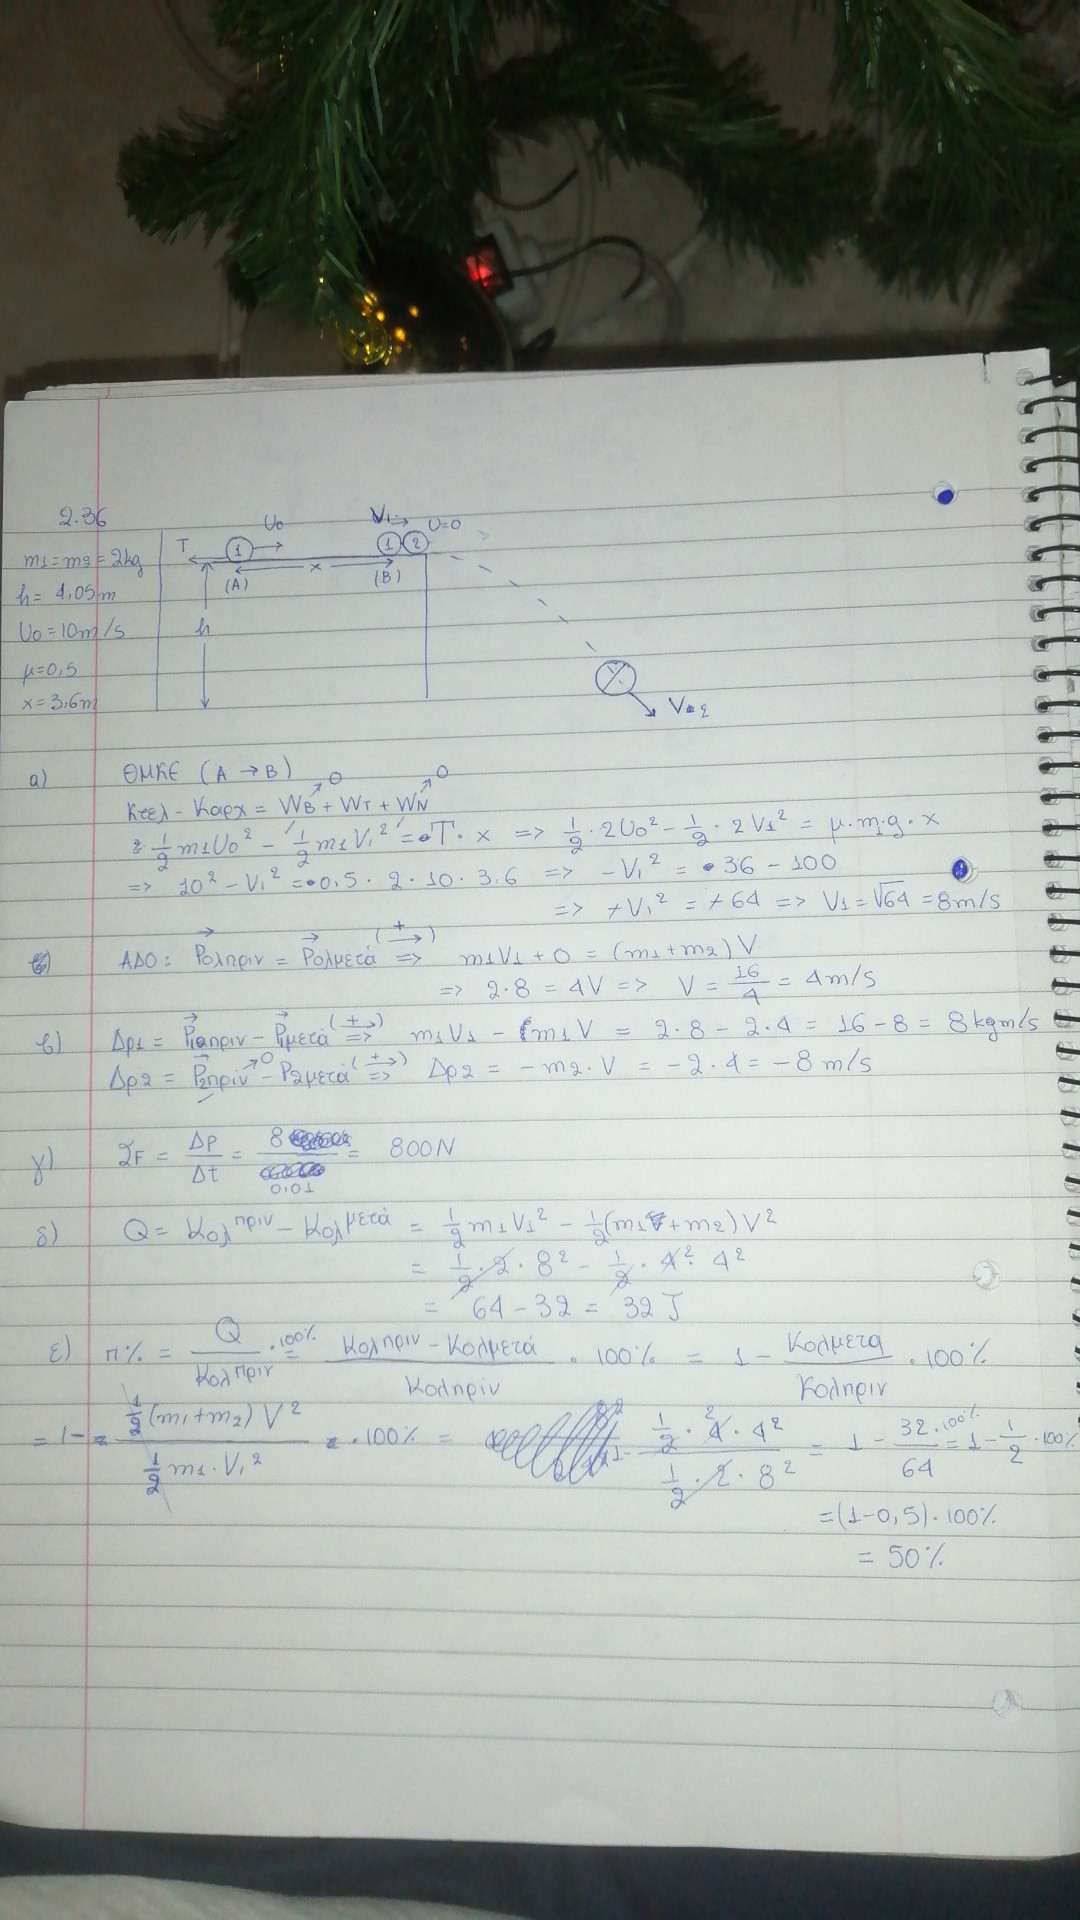 2.36
m1=m2=2kg
h= 4,05m
U0=10m/s
μ=0,5
x=3,6m
T
1
U0
x
V1
1 2
U=0
(A)
(B)
h
V2
α) ΘΜΚΕ (A → B)
Kτελ - Kαρχ = WB + WT + WN
0 0
1/2 m1U0² - 1/2 m1V1² = T·x => 1/2·2U0² - 1/2·2V1² = μ·m1·g·x
=> 10² - V1² = 0,5·2·10·3,6 => -V1² = 36 - 100
=> +V1² = +64 => V1=√64 =8m/s
ΑΔΟ: Pολπριν = Pολμετά (+→) => m1V1 + 0 = (m1+m2) V
=> 2·8 = 4V => V = 16/4 = 4m/s
β) Δp1 = P1πριν - P1μετά (+→) => m1V1 - m1V = 2·8 - 2·4 = 16-8 = 8kgm/s
Δp2 = P2πριν - P2μετά (+→) => Δp2 = -m2·V = -2·4 = -8 m/s
0
γ) ΣF = Δp/Δt = 8/0,01 = 800N
δ) Q= Kολπριν - Kολμετά = 1/2 m1V1² - 1/2(m1+m2) V²
= 1/2·2·8² - 1/2·4·4²
= 64-32 = 32J
ε) π% = Q/Kολπριν ·100% = Kολπριν - Kολμετά/Kολπριν · 100% = 1 - Kολμετα/Kολπριν · 100%
= 1- 1/2(m1+m2) V²/1/2 m1·V1² ·100% = 1- 1/2·4·4²/1/2·2·8² = 1 - 32/64·100% = 1-1/2·100%
=(1-0,5)·100%
= 50%